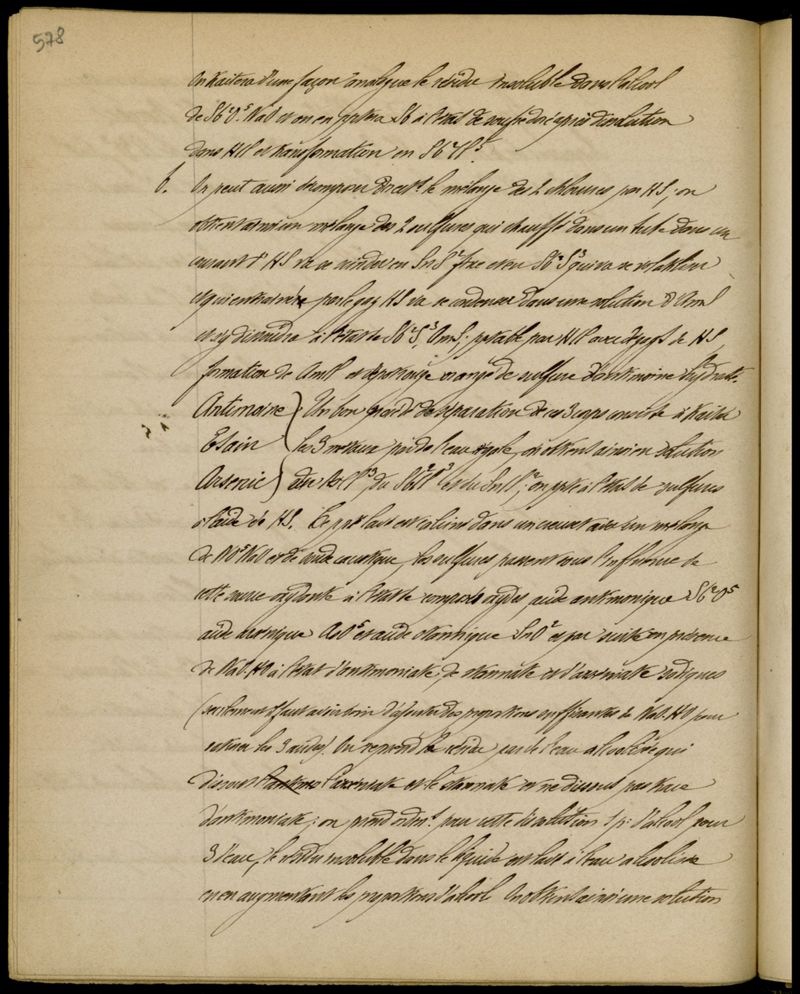 578
on traitera d'une façon analogue le résidu insoluble dans l'alcool
de Sb²O⁵, NaO et on en pptera Sb à l'état de soufre doré après dissolution
dans HCl et transformation en Sb²Cl⁵.
b. On peut aussi décomposer direct^t le mélange des 2 chlorures par HS; on
obtient ainsi un mélange des 2 sulfures qui chauffé dans un tube dans un
courant d'HS va se scinder en SnS² fixe et en Sb²S³ qui va se volatiliser
et qui entraîné par le gaz HS va se condenser dans une solution d'AmS
et s'y dissoudra à l'état de Sb²S³, AmS; pptable par HCl avec dégag^t de HS,
formation de AmCl et dépôt rouge orangé de sulfure d'antimoine hydraté.
Antimoine } Un bon procédé de séparation de ces 3 corps consiste à traiter
Etain les 3 métaux par de l'eau régale, on obtient ainsi une solution
Arsenic de AsCl³, du Sb²Cl³ et du SnCl²; on ppte à l'état de sulfures
à l'aide de HS. Le ppté lavé est calciné dans un creuset avec un mélange
de AzO⁵NaO et de soude caustique, les sulfures passent sous l'influence de
cette masse oxydante à l'état de composés oxydés, acide antimonique Sb²O⁵
acide arsénique AsO⁵ et acide stannique SnO² et par suite en présence
de NaO, HO à l'état d'antimoniate, de stannate et d'arséniate sodiques
(seulement il faut avoir soin d'ajouter des proportions suffisantes de NaO, HO pour
saturer les 3 acides). On reprend le résidu par de l'eau alcoolisée qui
dissout l'arséniate et le stannate et ne dissout pas trace
d'antimoniate; on prend ordin^t pour cette dissolution 1 p. d'alcool pour
3 d'eau, le résidu insoluble dans le liquide est lavé à l'eau alcoolisée
en en augmentant les proportions d'alcool. On obtient ainsi une solution